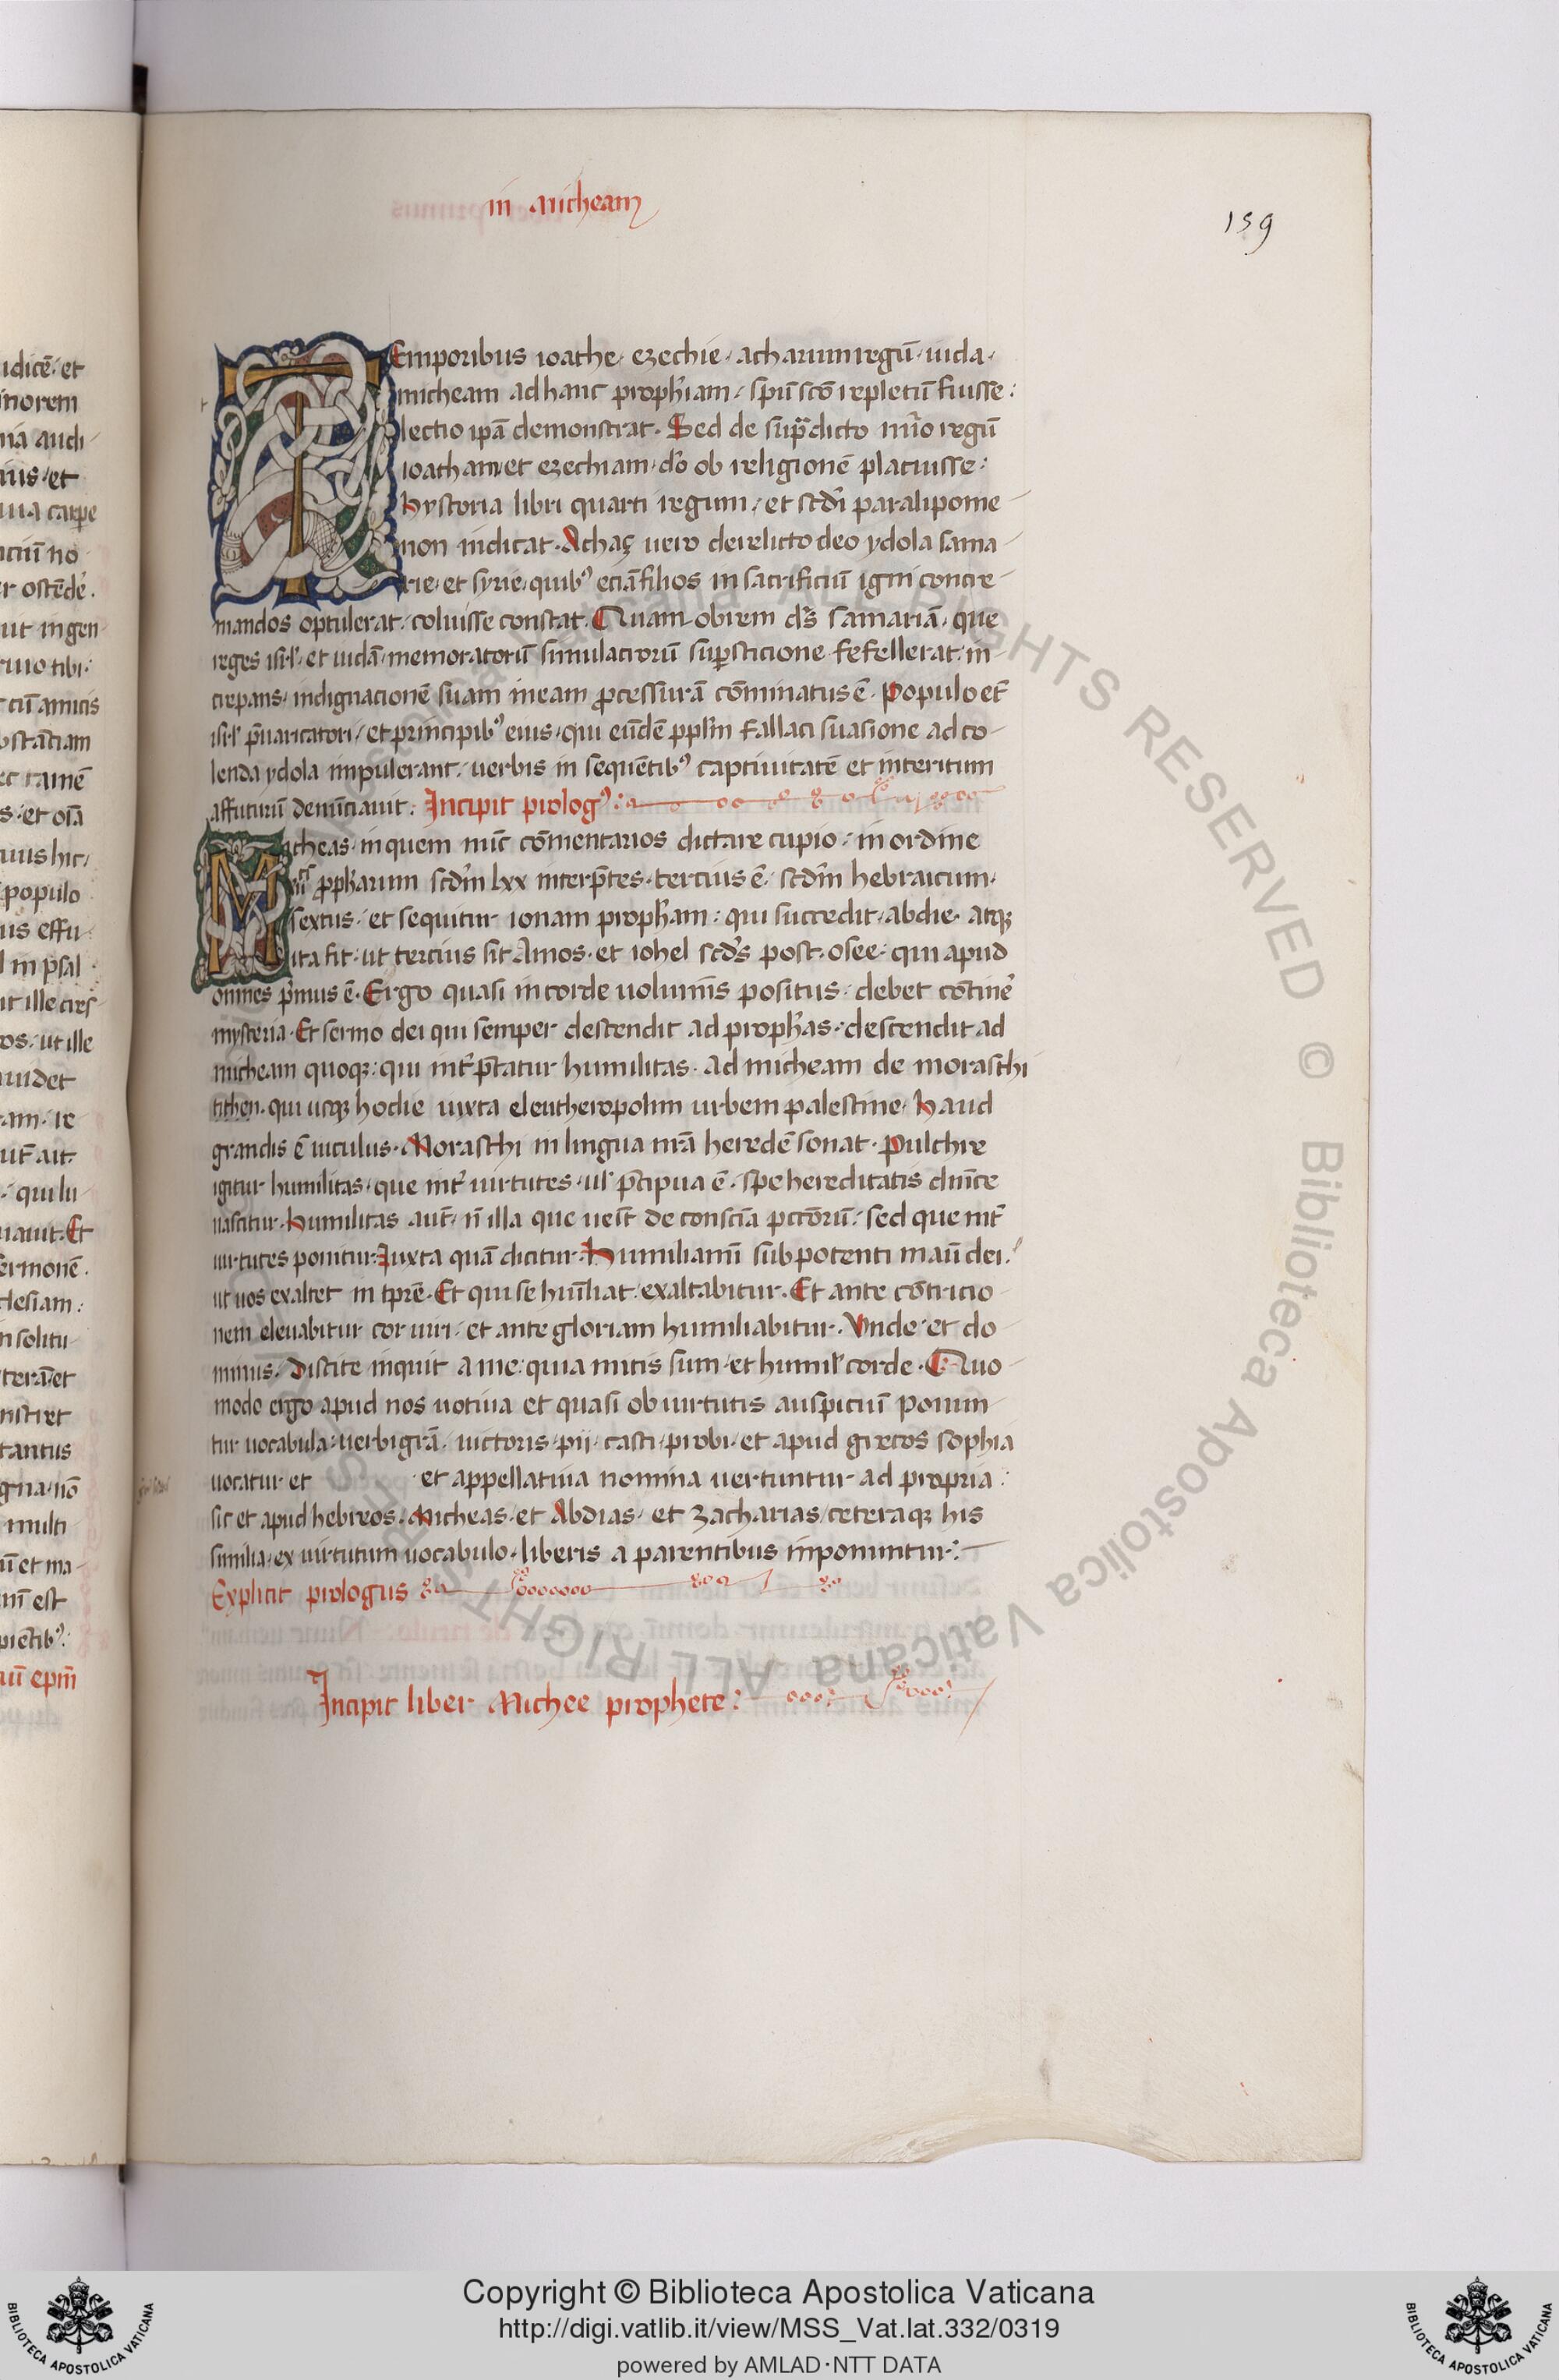 in Micheam
159
Temporibus ioathe· ezechie· acharum regū· iuda·
micheam ad hanc proph̄iam· spū scō repletū fuisse:
lectio ip̄a demonstrat· Sed de sup̄dicto nūo regū
ioatham et ezechiam· dō ob religionē placuisse:
hystoria libri quarti regum· et scd̄i paralipome-
non indicat· Achaç uero derelicto deo ydola sama-
rie· et syrie· quib⁹ eciā filios in sacrificiū igni concre-
mandos optulerat· coluisse constat· Quam obrem dn̄s samariā· que
reges isrl̄· et iudā· memoratorū simulacrorū sup̱sticione fefellerat· in-
crepans· indignacionē suam in eam p̱cessurā cōminatus ē· Populo et̄
isrl̄ p̄uaricatori· et principib⁹ eius· qui eūdē ppl̄m fallaci suasione ad co-
lenda ydola impulerant· uerbis in sequētib⁹ captiuitatē et interitum
affuturū denūciauit· Incipit prolog⁹:
Micheas· in quem nūc cōmentarios dictare cupio· in ordine
xii p̱ph̄arum scd̄m lxx interp̄tes· tercius ē· scd̄m hebraicum·
sextus· et sequitur ionam proph̄am: qui succedit· abdie· atqꝫ
ita fit· ut tercius sit Amos· et iohel scd̄s post· osee· qui apud
omnes p̄mus ē· Ergo quasi in corde uolumīs positus· debet cōtinē
mysteria· Et sermo dei qui semper descendit ad proph̄as· descendit ad
micheam quoqꝫ: qui int̄p̄tatur humilitas· ad micheam de moraschi
tithen· qui usqꝫ hodie iuxta eleutheropolim urbem palestine· haud
grandis ē uiculus· Moraschi in lingua nr̄a heredē sonat· Pulchre
igitur humilitas· que int̄ uirtutes· ul̄ p̄cipua ē· spe hereditatis dn̄ice
nascitur· Humilitas aut̄· n̄ illa que uēit de conscīa pctōrū· sed que int̄
uirtutes ponitur· Iuxta quā dicitur· Humiliamī sub potenti manū dei·
ut uos exaltet in tp̄re· Et qui se hūiliat· exaltabitur· Et ante cōtricio-
nem eleuabitur cor uiri· et ante gloriam humiliabitur· Vnde· et do-
minus· Discite inquit a me: quia mitis sum· et humil̄ corde· Quo-
modo ergo apud nos uotiua et quasi ob uirtutis auspiciū ponun-
tur uocabula· uerbi grā· uictoris· pij· casti· probi· et apud grecos sophia
uocatur et · et appellatiua nomina uertuntur ad propria:
sic et apud hebreos· Micheas· et Abdias· et Zacharias· ceteraqꝫ his
similia· ex uirtutum uocabulo· liberis a parentibus inponuntur:
Explicit prologus
Incipit liber Michee prophete:
Copyright © Biblioteca Apostolica Vaticana
http://digi.vatlib.it/view/MSS_Vat.lat.332/0319
powered by AMLAD·NTT DATA